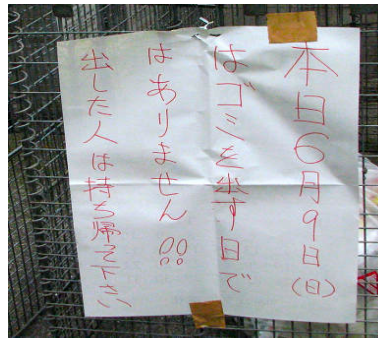 本日6月9日(日)
はゴミを出す日で
はありません!!
出した人は持ち帰って下さい